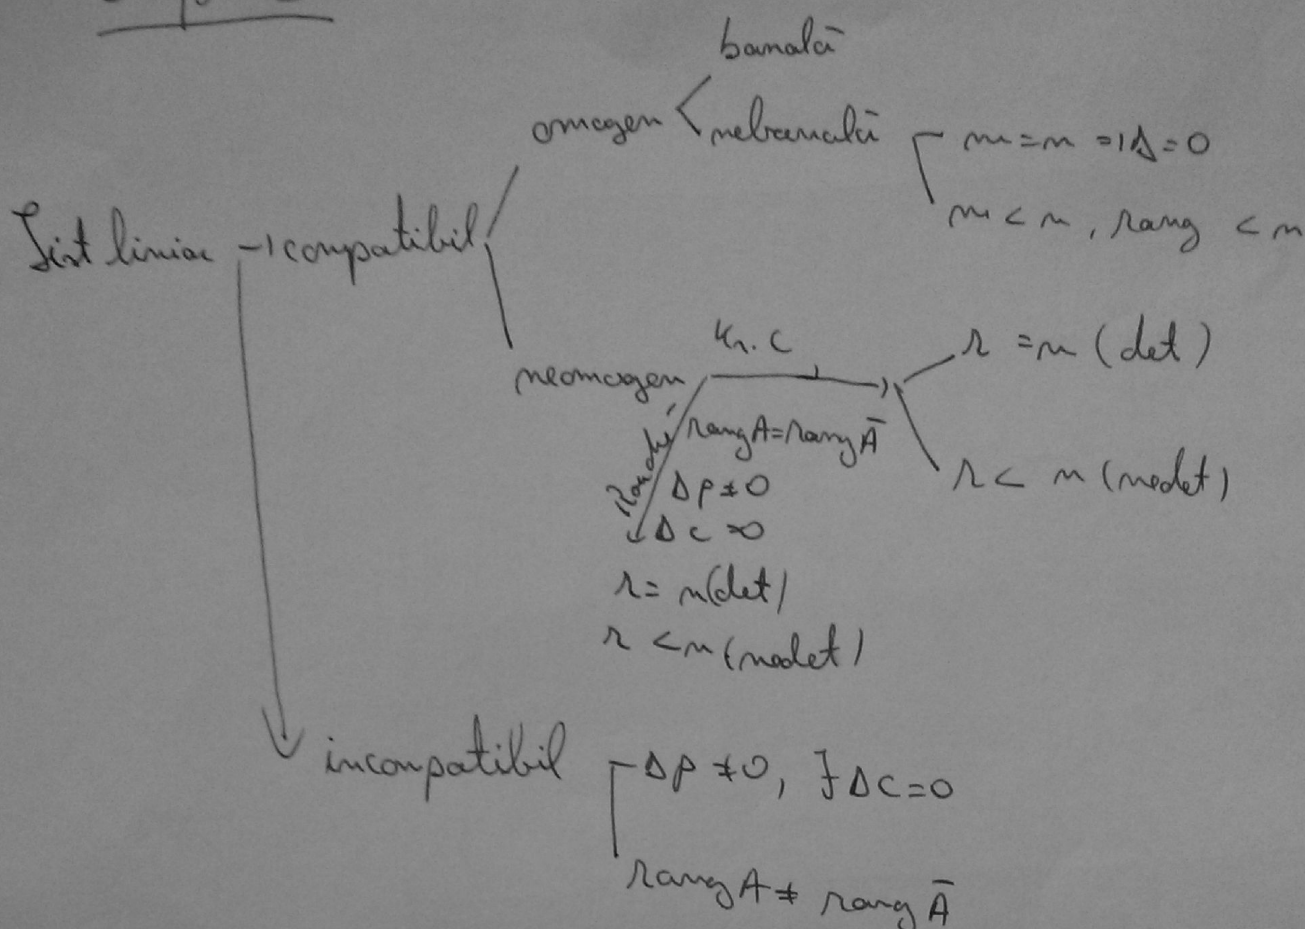 banală
omogen nebanală m = n => Δ = 0
m < n, rang < n
Sist liniar → compatibil
neomogen Kr. C r = n (det)
Rouché rang A = rang Ā
Δp ≠ 0 r < n (nedet)
Δc = 0
r = n (det)
r < n (nedet)
incompatibil Δp ≠ 0, ∃ Δc = 0
rang A ≠ rang Ā